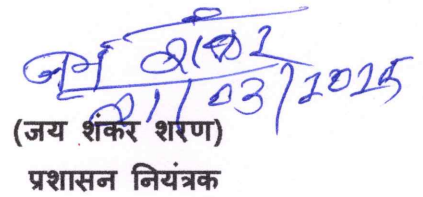 जय शंकर
21/03/2025
(जय शंकर शरण)
प्रशासन नियंत्रक